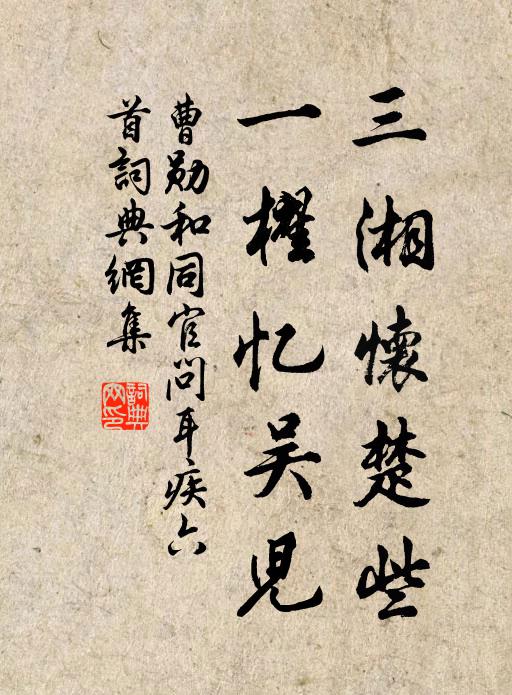 三湘懷楚些
一櫂忆吴兒
曹勛和同官問耳疾六
首詞典網集
詞典
网印